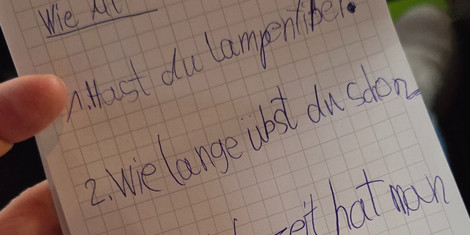 Wie
1. Hast du Lampenfieber.
2. Wie lange übst du schon
zeit hat man